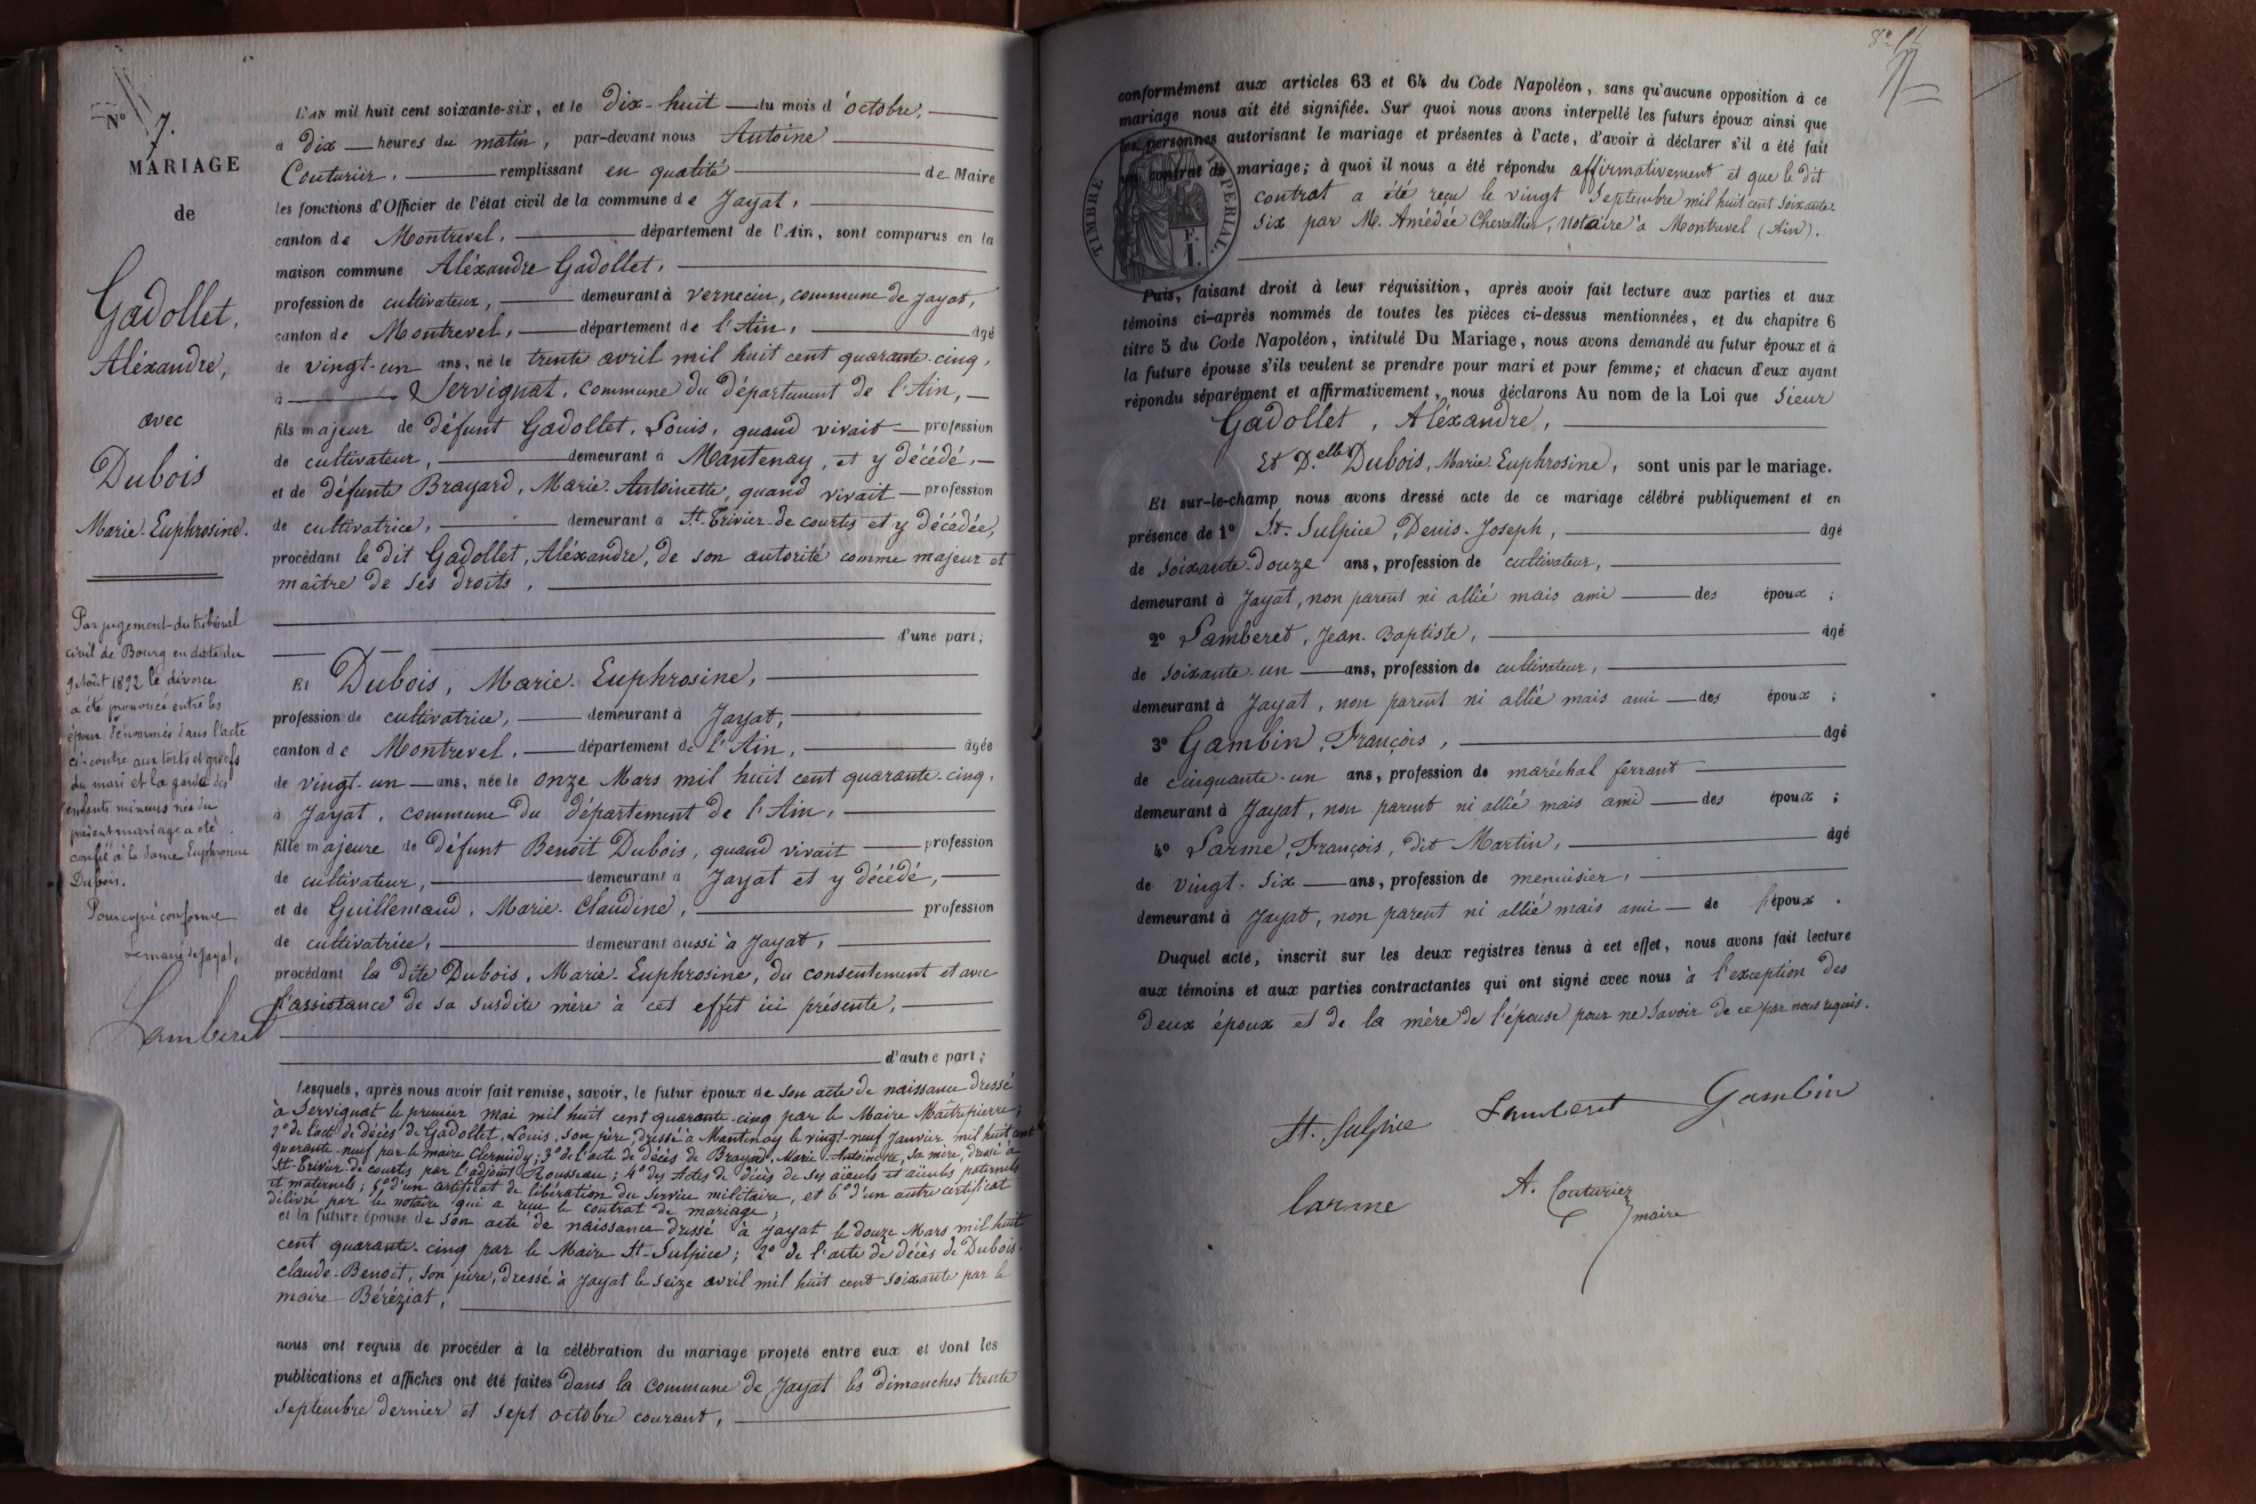 N° 7.
MARIAGE
de
Gadollet,
Aléxandre,
avec
Dubois
Marie-Euphrosine.
Par jugement du tribunal
civil de Bourg en date du
9 Août 1892 le divorce
a été prononcé entre les
époux dénommés dans l'acte
ci-contre aux torts et griefs
du mari et la garde des
enfants mineurs nés du
présent mariage a été
confié à la dame Euphrosine
Dubois.
Pour copie conforme
Le maire de Jayat,
Lamberet
L'AN mil huit cent soixante-six, et le dix-huit du mois d'octobre,
à dix heures du matin, par-devant nous Antoine
Couturier, remplissant en qualité de Maire
les fonctions d'Officier de l'état civil de la commune de Jayat,
canton de Montrevel, département de l'Ain, sont comparus en la
maison commune Aléxandre Gadollet,
profession de cultivateur, demeurant à Vernecin, commune de Jayat,
canton de Montrevel, département de l'Ain, âgé
de vingt-un ans, né le trente avril mil huit cent quarante-cinq,
à Servignat, commune du département de l'Ain,
fils majeur de défunt Gadollet, Louis, quand vivait profession
de cultivateur, demeurant à Mantenay, et y décédé,
et de défunte Brayard, Marie-Antoinette, quand vivait profession
de cultivatrice, demeurant à St-Trivier-de-courtes et y décédée,
procédant le dit Gadollet, Aléxandre, de son autorité comme majeur et
maître de ses droits,
d'une part;
Et Dubois, Marie-Euphrosine,
profession de cultivatrice, demeurant à Jayat,
canton de Montrevel, département de l'Ain, âgée
de vingt-un ans, née le onze Mars mil huit cent quarante-cinq,
à Jayat, commune du département de l'Ain,
fille majeure de défunt Benoît Dubois, quand vivait profession
de cultivateur, demeurant à Jayat et y décédé,
et de Guillemaud, Marie-Claudine, profession
de cultivatrice, demeurant aussi à Jayat,
procédant la dite Dubois, Marie-Euphrosine, du consentement et avec
l'assistance de sa susdite mère à cet effet ici présente,
d'autre part;
Lesquels, après nous avoir fait remise, savoir, le futur époux de son acte de naissance dressé
à Servignat le premier mai mil huit cent quarante-cinq par le Maire Maîtrepierre;
2° de l'acte de décès de Gadollet, Louis, son père, dressé à Mantenay le vingt-neuf Janvier mil huit cent
quarante-neuf par le maire; 3° de l'acte de décès de Brayard, Marie-Antoinette, sa mère, dressé à
St-Trivier-de-courtes par l'adjoint Rousseau; 4° des Actes de décès de ses aïeuls et aïeules paternels
et maternels; 5° d'un certificat de libération du service militaire, et 6° d'un autre certificat
délivré par le notaire qui a reçu le contrat de mariage;
et la future épouse de son acte de naissance dressé à Jayat le douze Mars mil huit
cent quarante-cinq par le Maire St-Sulpice; 2° de l'acte de décès de Dubois
Claude-Benoît, son père, dressé à Jayat le seize avril mil huit cent soixante par le
maire Béréziat,
nous ont requis de procéder à la célébration du mariage projeté entre eux et dont les
publications et affiches ont été faites dans la commune de Jayat les dimanches trente
septembre dernier et sept octobre courant,
conformément aux articles 63 et 64 du Code Napoléon, sans qu'aucune opposition à ce
mariage nous ait été signifiée. Sur quoi nous avons interpellé les futurs époux ainsi que
les personnes autorisant le mariage et présentes à l'acte, d'avoir à déclarer s'il a été fait
un contrat de mariage; à quoi il nous a été répondu affirmativement et que le dit
contrat a été reçu le vingt Septembre mil huit cent soixante-
six par M. Amédée Chevallier, notaire à Montrevel (Ain).
TIMBRE IMPERIAL.
F.
1.
Puis, faisant droit à leur réquisition, après avoir fait lecture aux parties et aux
témoins ci-après nommés de toutes les pièces ci-dessus mentionnées, et du chapitre 6
titre 5 du Code Napoléon, intitulé Du Mariage, nous avons demandé au futur époux et à
la future épouse s'ils veulent se prendre pour mari et pour femme; et chacun d'eux ayant
répondu séparément et affirmativement, nous déclarons Au nom de la Loi que Sieur
Gadollet, Aléxandre,
Et D.elle Dubois, Marie-Euphrosine, sont unis par le mariage.
Et sur-le-champ nous avons dressé acte de ce mariage célébré publiquement et en
présence de 1° St-Sulpice, Denis-Joseph, âgé
de soixante-douze ans, profession de cultivateur,
demeurant à Jayat, non parent ni allié mais ami des époux;
2° Lamberet, Jean-Baptiste, âgé
de soixante-un ans, profession de cultivateur,
demeurant à Jayat, non parent ni allié mais ami des époux;
3° Gambin, François, âgé
de cinquante-un ans, profession de maréchal ferrant
demeurant à Jayat, non parent ni allié mais ami des époux;
4° Larme, François, dit Martin, âgé
de vingt-six ans, profession de menuisier,
demeurant à Jayat, non parent ni allié mais ami de l'époux.
Duquel acte, inscrit sur les deux registres tenus à cet effet, nous avons fait lecture
aux témoins et aux parties contractantes qui ont signé avec nous à l'exception des
deux époux et de la mère de l'épouse pour ne savoir de ce par nous requis.
St. Sulpice Lamberet Gambin
larme A. Couturier
maire